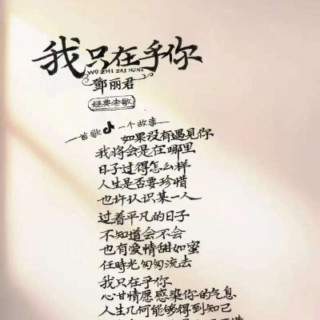 我只在乎你
WO ZHI ZAI HU NI
鄧丽君
经典老歌
一首歌 一个故事
如果没有遇见你
我将会是在哪里
日子过得怎么样
人生是否要珍惜
也许认识某一人
过着平凡的日子
不知道会不会
也有爱情甜如蜜
任時光匆匆流去
我只在乎你
心甘情愿感染你的气息
人生几何能够得到知己